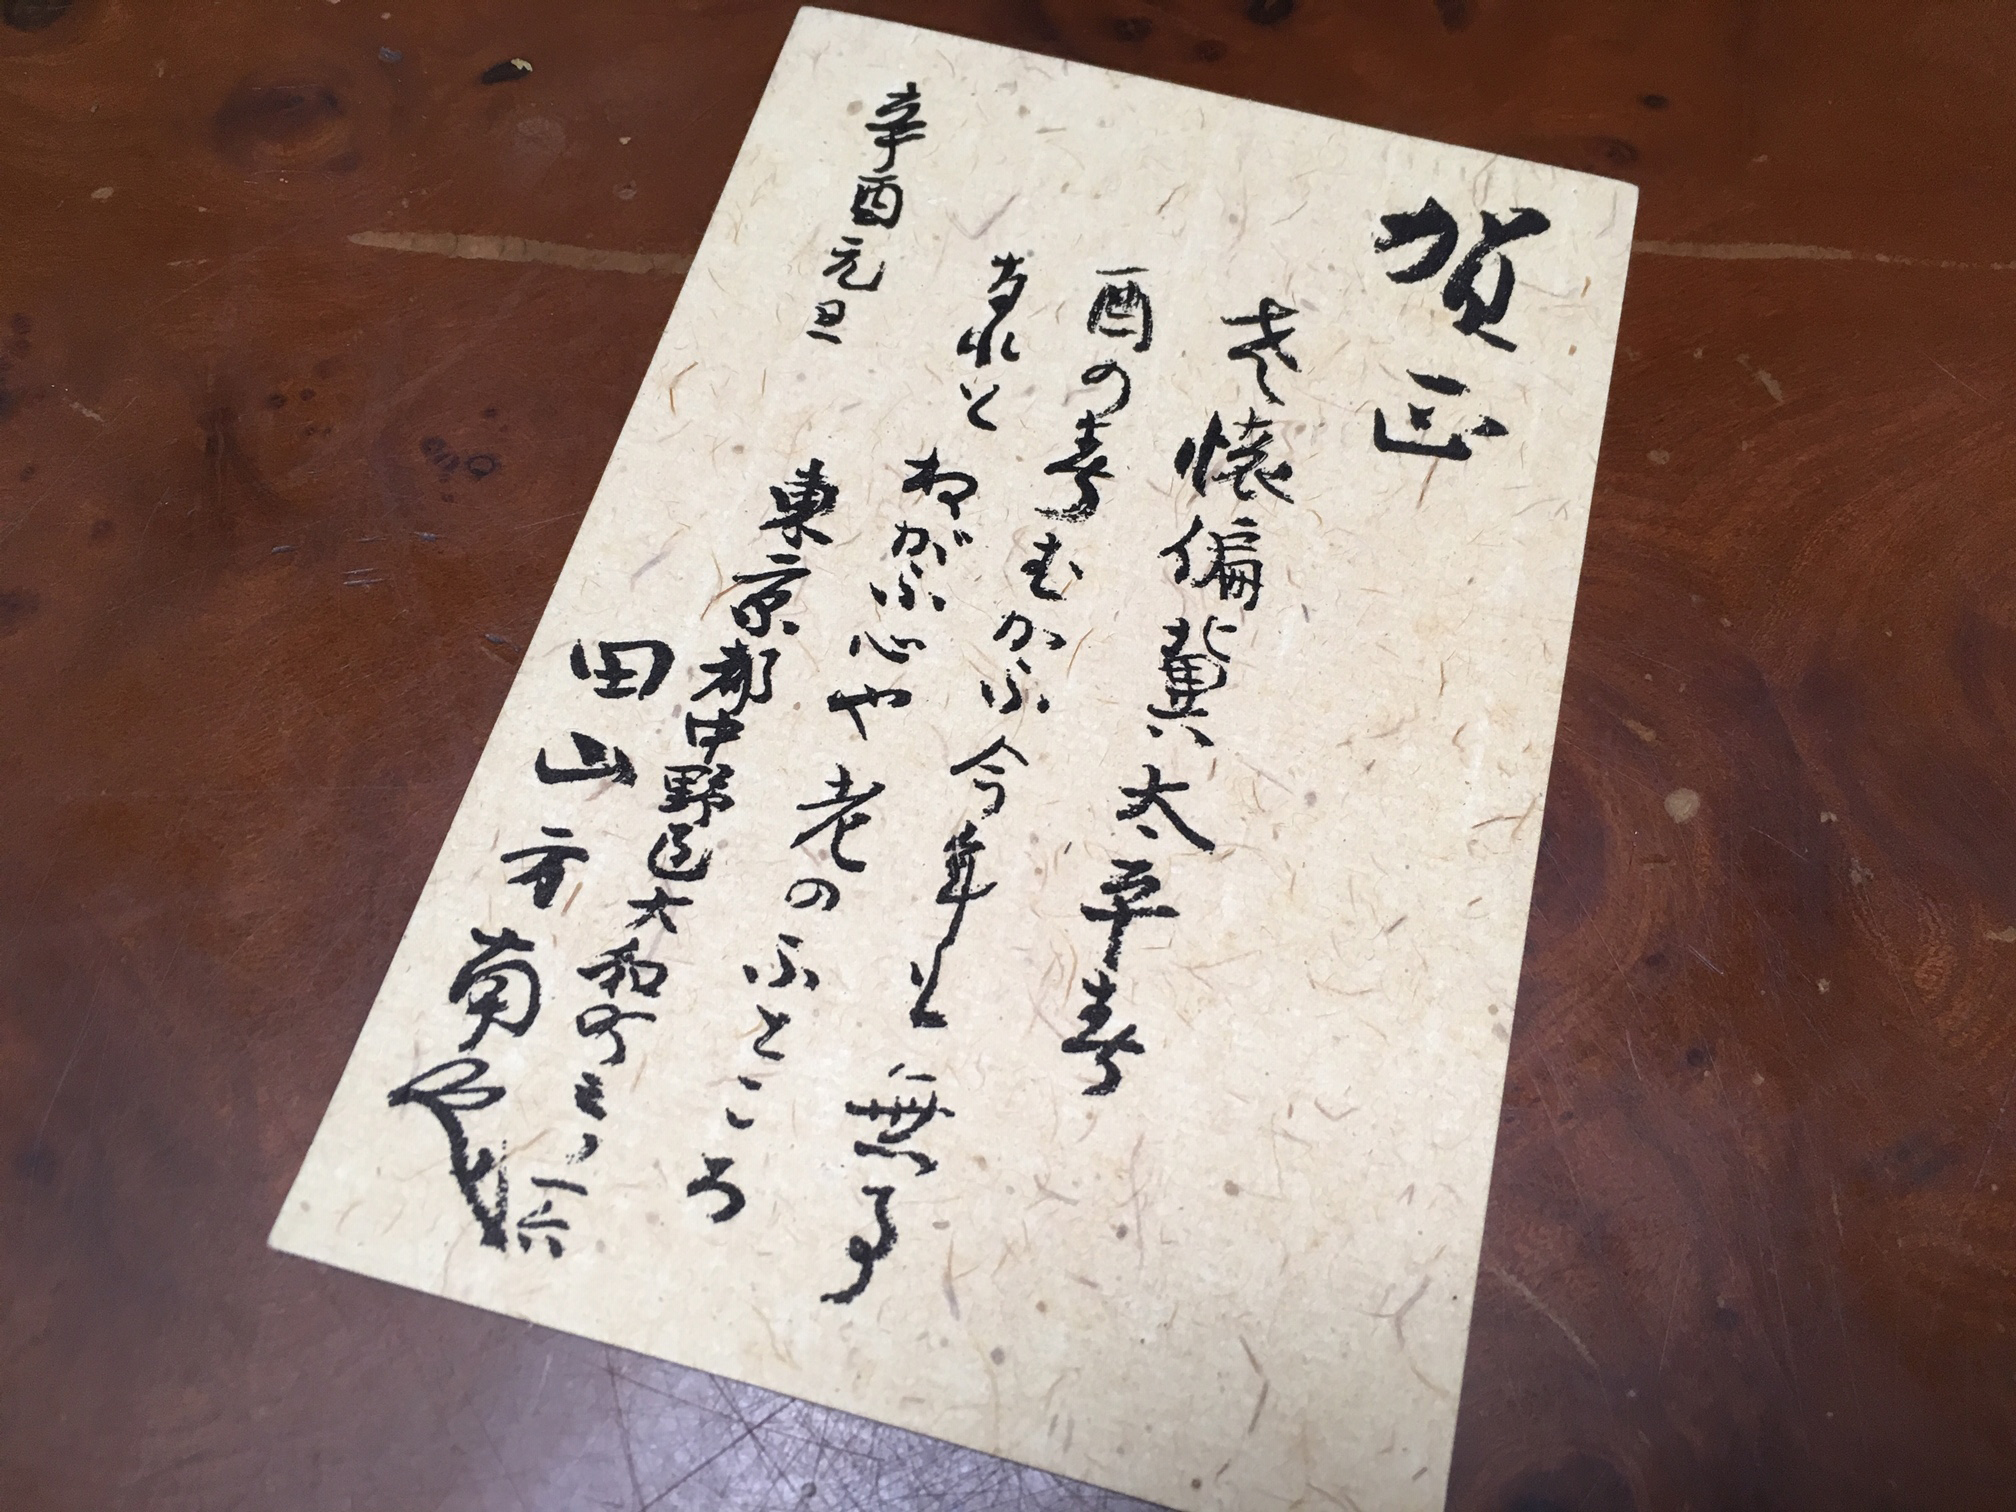 賀正
老懐偏冀太平春
酉の春むかふ今年も無事
あれと
ねがふ心や老のふところ
辛酉元旦
東京都中野区大和町三ノ一六
田山方南